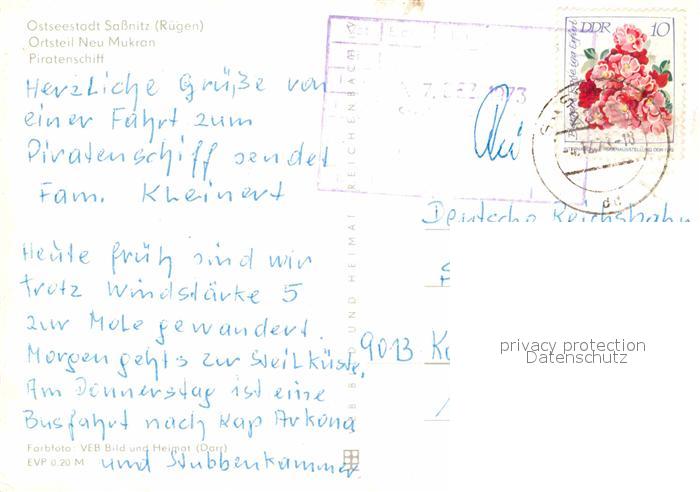 Ostseestadt Saßnitz (Rügen)
Ortsteil Neu Mukran
Piratenschiff
Herzliche Grüße von
einer Fahrt zum
Piratenschiff sendet
Fam. Kleinert
Heute früh sind wir
trotz Windstärke 5
zur Mole gewandert.
Morgen gehts zur Steilküste.
Am Donnerstag ist eine
Busfahrt nach Kap Arkona
und Stubbenkammer
Farbfoto: VEB Bild und Heimat (Darr)
EVP 0.20 M
BILD UND HEIMAT REICHENBACH
7. DEZ. 1973
DDR 10
Deutsche Reichsbahn
9013
privacy protection
Datenschutz